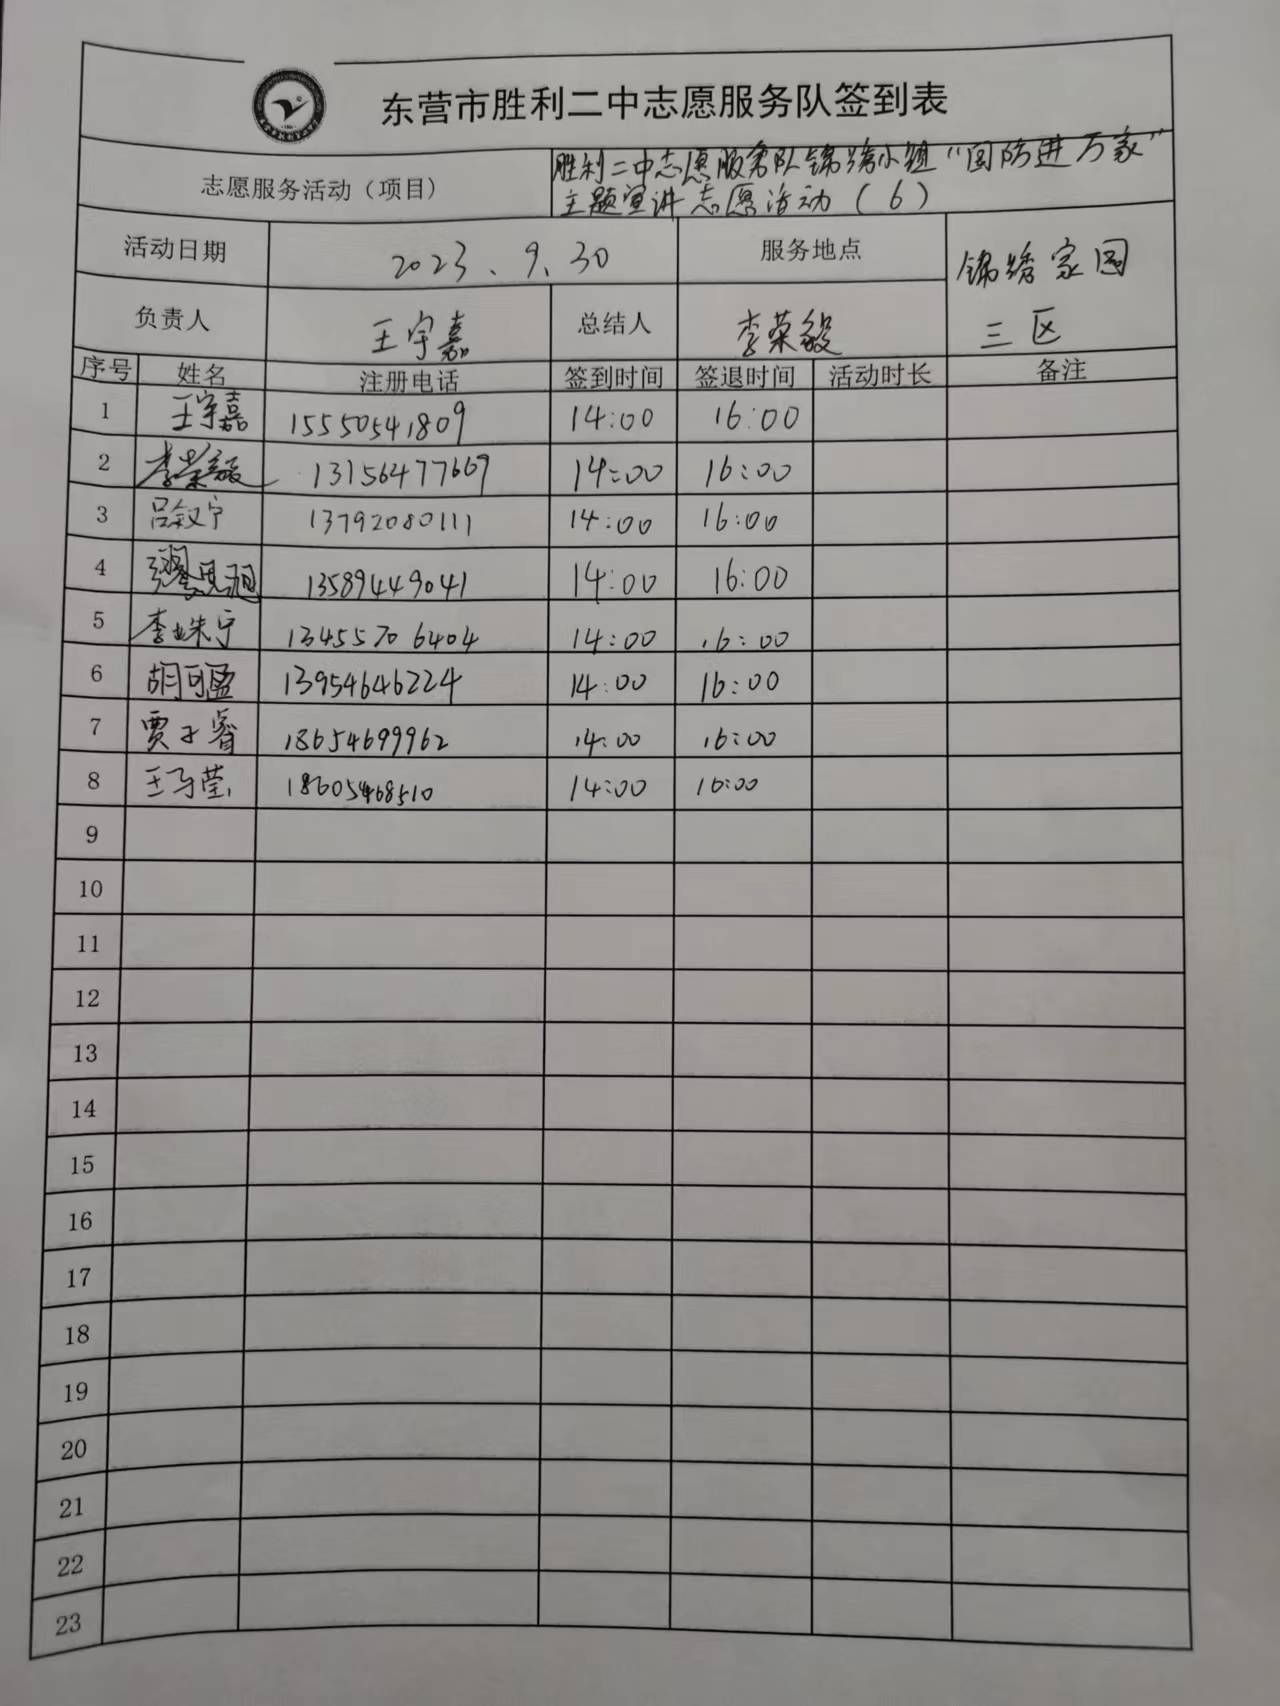 东营市胜利二中志愿服务队签到表
志愿服务活动（项目） 胜利二中志愿服务队锦绣小组“国防进万家”
主题宣讲志愿活动（6）
活动日期 2023、9、30 服务地点 锦绣家园
三区
负责人 王宇嘉 总结人 李荣毅
序号 姓名 注册电话 签到时间 签退时间 活动时长 备注
1 王宇嘉 15550541809 14:00 16:00
2 李荣毅 13156477669 14:00 16:00
3 吕叙宁 13792080111 14:00 16:00
4 13589449041 14:00 16:00
5 李姝宁 13455706404 14:00 16:00
6 胡可盈 13954646224 14:00 16:00
7 贾子睿 18654699962 14:00 16:00
8 王子莹 18605468510 14:00 16:00
9
10
11
12
13
14
15
16
17
18
19
20
21
22
23